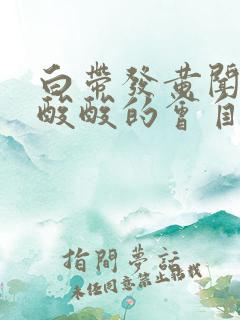 白带發黄闻
酸酸的會自
指間夢話
未经同意禁止转载